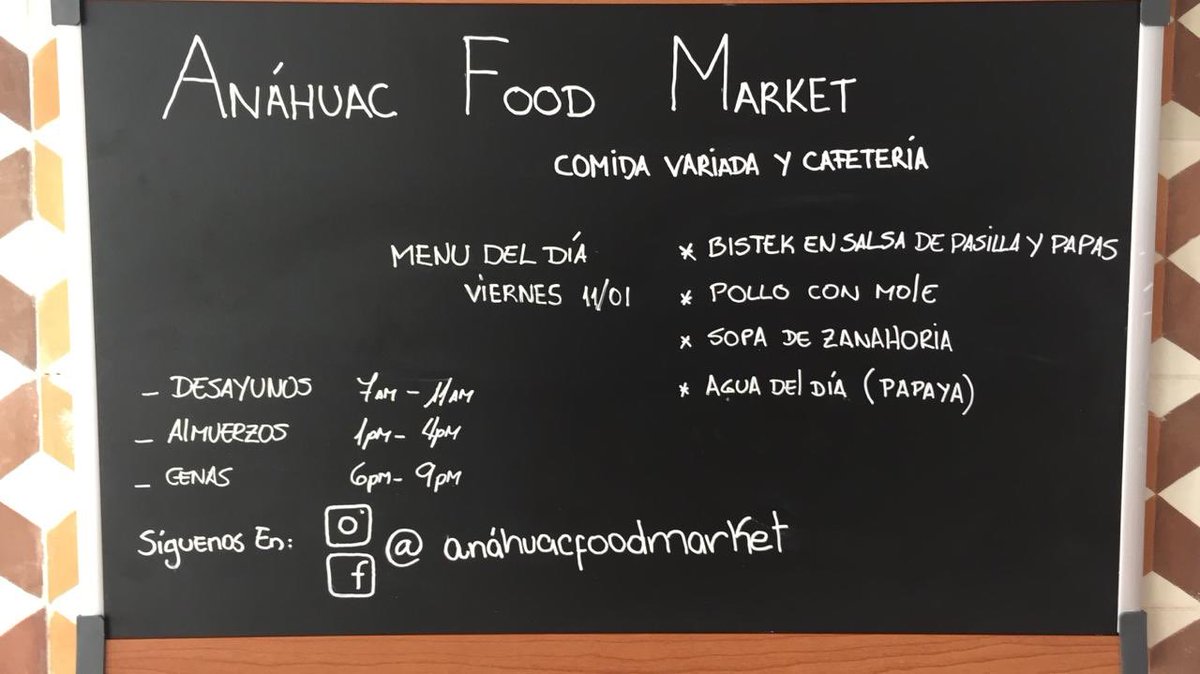 ANÁHUAC FOOD MARKET
COMIDA VARIADA Y CAFETERÍA
MENU DEL DÍA
VIERNES 11/01
* BISTEK EN SALSA DE PASILLA Y PAPAS
* POLLO CON MOLE
* SOPA DE ZANAHORIA
* AGUA DEL DÍA (PAPAYA)
- DESAYUNOS 7AM - 11AM
- ALMUERZOS 1PM - 4PM
- CENAS 6PM - 9PM
Síguenos En: @anáhuacfoodmarket